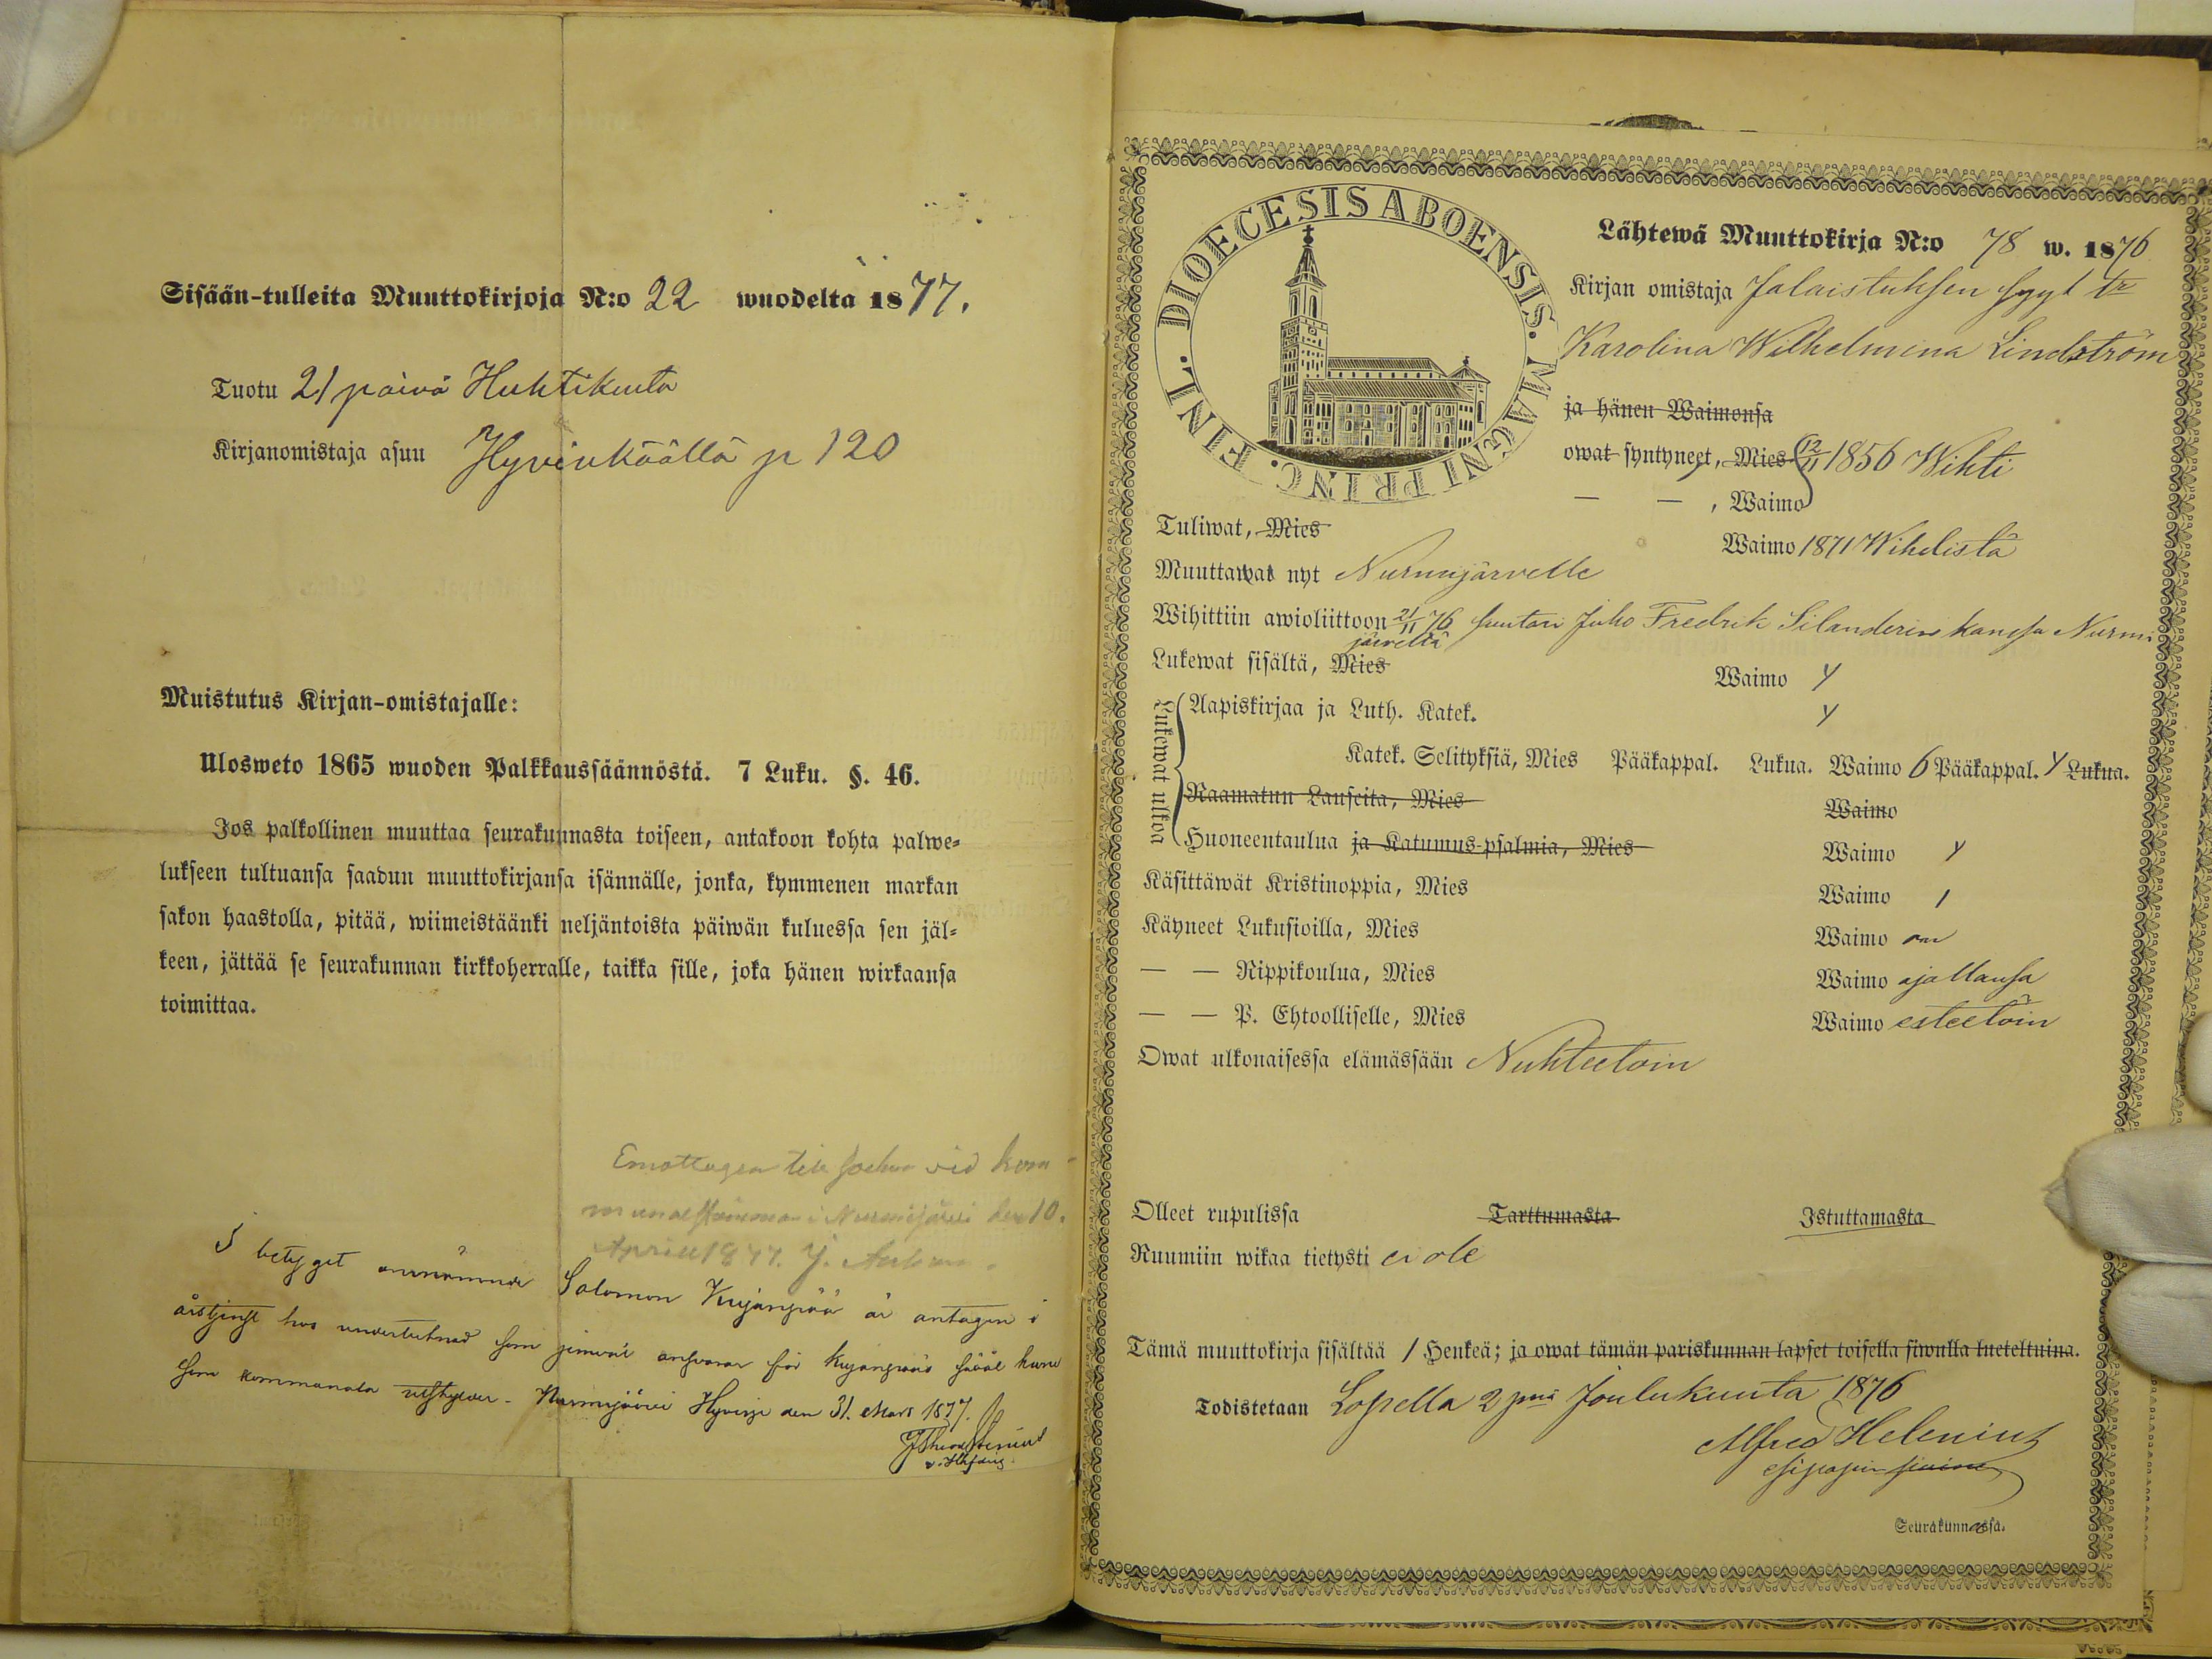 Sisään-tulleita Muuttokirjoja N:o 22 wuodelta 1877.
Tuotu 21 päivä Huhtikuuta
Kirjanomistaja asuu Hyvinkäällä p 120
Muistutus Kirjan-omistajalle:
Ulosweto 1865 wuoden Palkkaussäännöstä. 7 Luku. §. 46.
Jos palkollinen muuttaa seurakunnasta toiseen, antakoon kohta palwe-
lukseen tultuansa saadun muuttokirjansa isännälle, jonka, kymmenen markan
sakon haastolla, pitää, wiimeistäänki neljäntoista päiwän kuluessa sen jäl-
keen, jättää se seurakunnan kirkkoherralle, taikka sille, joka hänen wirkaansa
toimittaa.
Emottagen till socken vid kom-
munalstämman i Nurmijärvi den 10.
April 1877. J.
I betyget omnämnde Salomon Kujanpää är antagen i
årstjenst hos undertecknad som jemväl ansvarar för Kujanpääs såväl krono
som kommunala utskylder. Nurmijärvi Hyvinge den 31. Mars 1877.
DIOECESIS ABOENSIS. MAGNI PRINC. FINL.
Lähtewä Muuttokirja N:o 78 w. 1876
Kirjan omistaja Jalaistuksen tr
Karolina Wilhelmina Lindström
ja hänen Waimonsa
owat syntyneet, Mies 12/11 1856 Wihti
— — , Waimo
Tuliwat, Mies
Waimo 1871 Wihdistä
Muuttawat nyt Nurmijärvelle
Wihittiin awioliittoon 21/11 76 suutari Juho Fredrik Silanderin kanssa Nurmi
järveltä
Lukewat sisältä, Mies Waimo Y
Lukewat ulkoa
Aapiskirjaa ja Luth. Katek. Y
Katek. Selityksiä, Mies Pääkappal. Lukua. Waimo 6 Pääkappal. Y Lukua.
Raamatun Lauseita, Mies Waimo
Huoneentaulua ja Katumus-psalmia, Mies Waimo Y
Käsittäwät Kristinoppia, Mies Waimo 1
Käyneet Lukusioilla, Mies Waimo on
— — Rippikoulua, Mies Waimo ajallansa
— — P. Ehtoolliselle, Mies Waimo esteetöin
Owat ulkonaisessa elämässään Nuhteetoin
Olleet rupulissa Tarttumasta Istuttamasta
Ruumiin wikaa tietysti ei ole
Tämä muuttokirja sisältää 1 Henkeä; ja owat tämän pariskunnan lapset toisella siwulla lueteltuina.
Todistetaan Lopella 2 pnä Joulukuuta 1876
Alfred Helenius
Seurakunnassa.